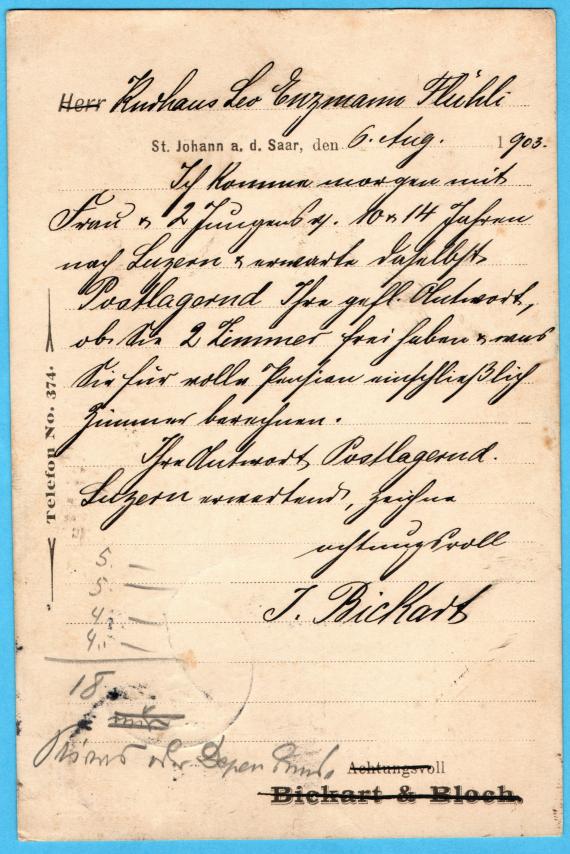 Herr Kurhaus Leo Enzmann Flühli
St. Johann a. d. Saar, den 6. Aug. 1903.
Ich komme morgen mit
Frau & 2 Jungens v. 10 & 14 Jahren
nach Luzern & erwarte daselbst
Postlagernd Ihre gefl. Antwort,
ob Sie 2 Zimmer frei haben & was
Sie für volle Pension einschließlich
Zimmer berechnen.
Ihre Antwort Postlagernd.
Luzern erwartend, zeichne
achtungsvoll
J. Bickart
Telefon No. 374.
5. —
5. —
4. —
4. —
18
oder
Achtungsvoll
Bickart & Bloch.